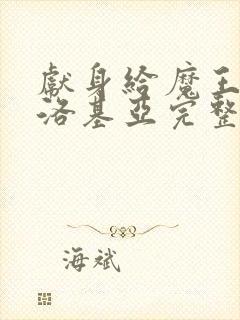 獻身給魔王
洛基亞完整
海斌